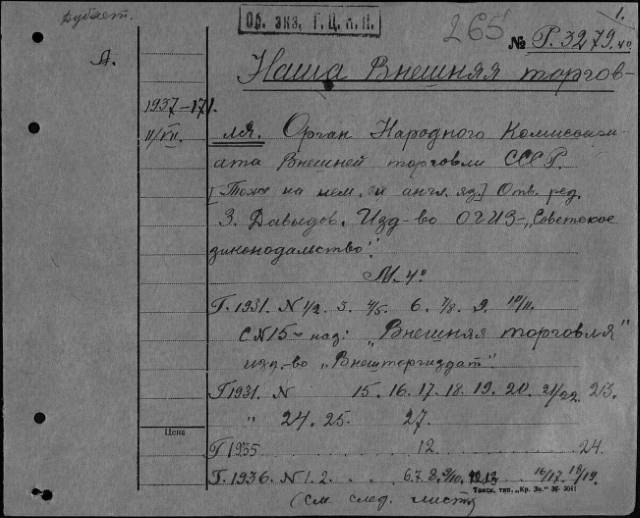 Об. экз. Г.Ц.К.П.
265
1.
№ Р.3279.4о
А.
Наша Внешняя торгов-
1937-171.
11/VII.
ля. Орган Народного Комиссари-
ата Внешней торговли СССР.
[Тоже на нем. и англ. яз.] Отв. ред.
З. Давыдов. Изд-во ОГИЗ-„Советское
законодательство".
М. 4о
Г. 1931. N 1/2. 3. 4/5. 6. 7/8. 9. 10/11.
С N 15 - наз: „Внешняя торговля"
изд.-во „Внешторгиздат".
Г 1931. N 15. 16. 17. 18. 19. 20. 21/22. 23.
" 24. 25. 27.
Цена
Г 1935 12 24.
Г. 1936. N 1. 2. . . 6.7. 8. 9/10. 12.13 16/17. 18/19.
Тамск. тип. „Кр. Зн." № 3041
(см. след. листъ)